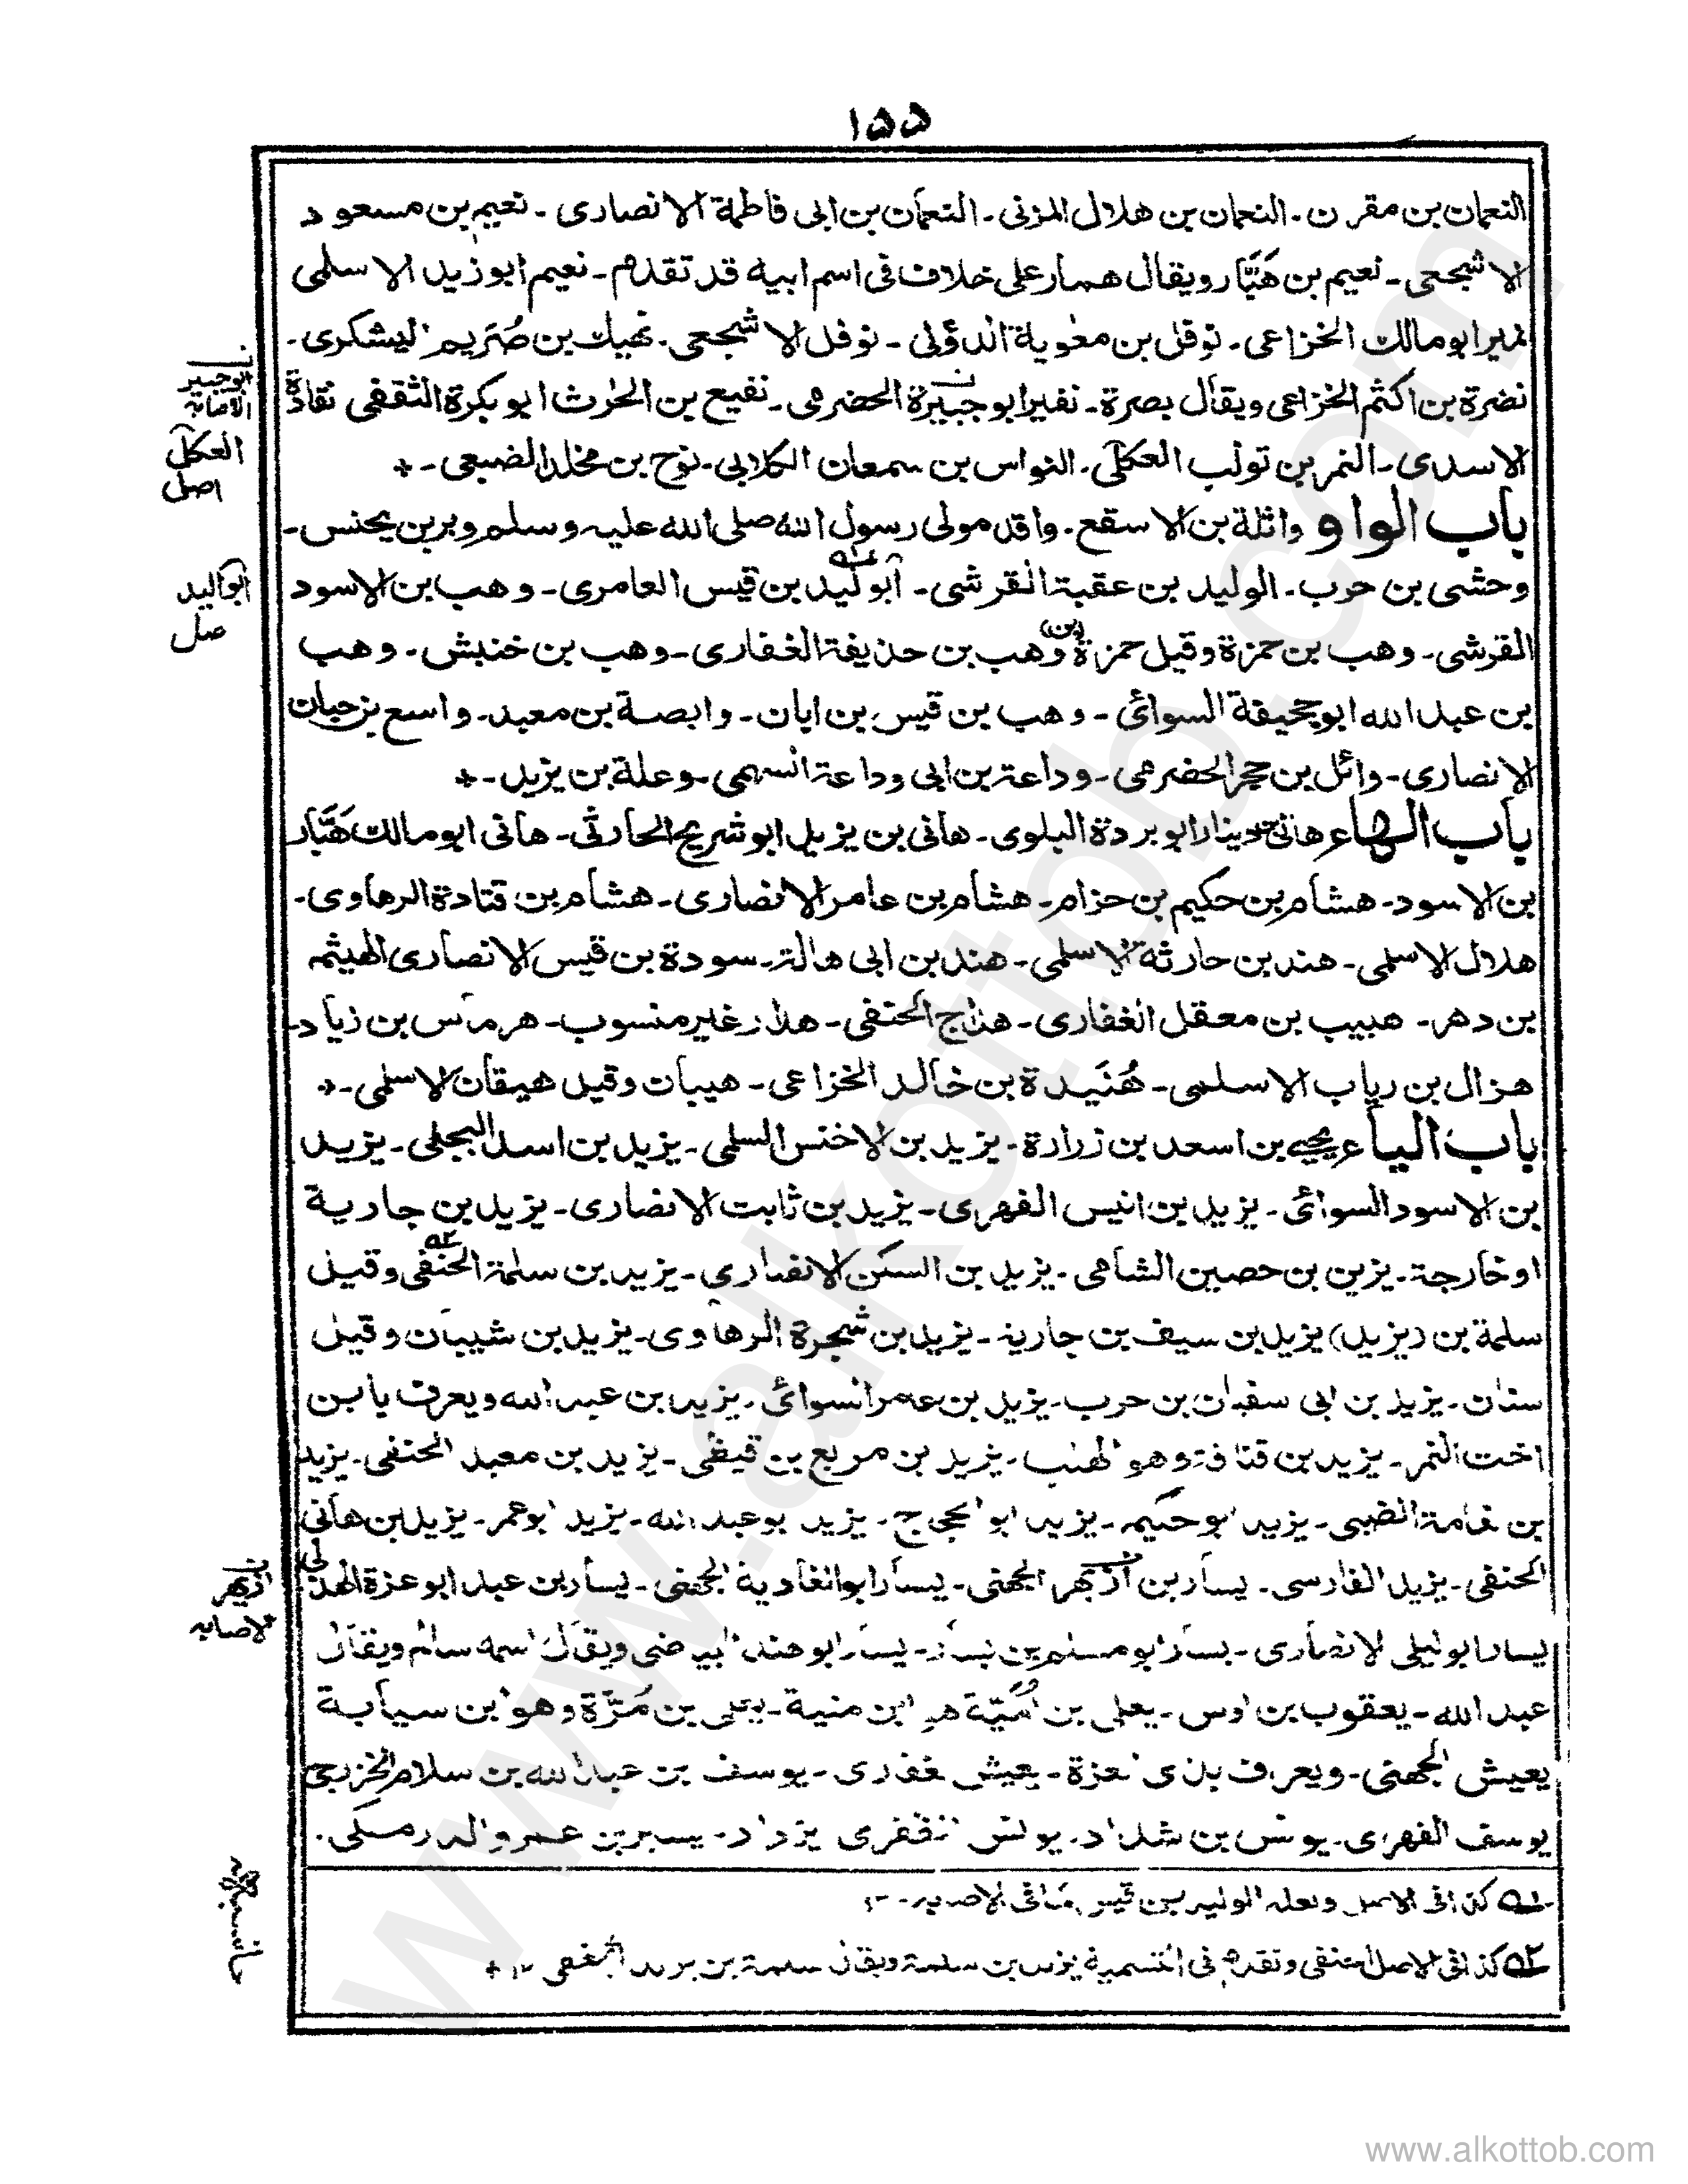 ١٥٥
النعمان بن مقرن - النعمان بن هلال المزنى - النعمان بن ابى فاطمة الانصارى - نعيم بن مسعود
الاشجعى - نعيم بن هَبَّار ويقال همار على خلاف فى اسم ابيه قد تقدم - نعيم ابو زيد الاسلمى
نمير ابو مالك الخزاعى - نوفل بن معوية الدؤلى - نوفل الاشجعى - نهيك بن صُرَيم اليشكرى -
نضرة بن اكثم الخزاعى ويقال بصرة - نفير ابو جبيرة الحضرمى - نفيع بن الحرث ابو بكرة الثقفى نقادة
الاسدى - النمر بن تولب العكلى - النواس بن سمعان الكلابى - نوح بن مخلد الضبعى - +
باب الواو واثلة بن الاسقع - واقد مولى رسول الله صلى الله عليه وسلم وبر بن يحنس -
وحشى بن حرب - الوليد بن عقبة القرشى - ابو ليد بن قيس العامرى - وهب بن الاسود
القرشى - وهب بن حمزة وقيل حمزة (بن) وهب بن حذيفة الغفارى - وهب بن خنبش - وهب
بن عبد الله ابو جحيفة السوائى - وهب بن قيس بن ابان - وابصة بن معبد - واسع بن حبان
الانصارى - وائل بن حجر الحضرمى - وداعة بن ابى وداعة السهمى - وعلة بن يزيد - +
باب الهاء هانئ بن دينار ابو بردة البلوى - هانى بن يزيد ابو شريح الحارثى - هانى ابو مالك هَبَّار
بن الاسود - هشام بن حكيم بن حزام - هشام بن عامر الانصارى - هشام بن قتادة الرهاوى -
هلال الاسلمى - هند بن حارثة الاسلمى - هند بن ابى هالة - سودة بن قيس الانصارى الهيثم
بن دهر - هبيب بن معقل الغفارى - هداج الحنفى - هدار غير منسوب - هرماس بن زياد -
هزال بن رباب الاسلمى - هُنَيدة بن خالد الخزاعى - هيبان وقيل هيقان الاسلمى - +
باب الياء يحيى بن اسعد بن زرارة - يزيد بن الاخنس السلمى - يزيد بن اسد البجلى - يزيد
بن الاسود السوائى - يزيد بن انيس الفهرى - يزيد بن ثابت الانصارى - يزيد بن جارية
او خارجة - يزين بن حصين الشامى - يزيد بن السكن الانصارى - يزيد بن سلمة الحنفى ٥٢ وقيل
سلمة بن (يزيد) يزيد بن سيف بن جارية - يزيد بن شجرة الرهاوى - يزيد بن شيبان وقيل
سنان - يزيد بن ابى سفيان بن حرب - يزيد بن عامر السوائى - يزيد بن عبد الله ويعرف يابن
اخت النمر - يزيد بن قنافة وهو الهلب - يزيد بن مربع بن قيظى - يزيد بن معبد الحنفى - يزيد
بن نعامة الضبى - يزيد ابو حكيم - يزيد ابو الحجاج - يزيد بو عبد الله - يزيد ابو عمر - يزيد بن هانى
الحنفى - يزيد الفارسى - يسار بن ازيهر الجهنى - يسار ابو الغادية الجهنى - يسار بن عبد ابو عزة الهذلى
يسار ابو ليلى الانصارى - يسار ابو مسلم بن يسار - يسار ابو هند البياضى ويقال اسمه سالم ويقال
عبد الله - يعقوب بن اوس - يعلى بن اُمَيّة هو ابن منية - يعلى بن مُرَّة وهو ابن سيابة
يعيش الجهنى - ويعرف بذى الغرة - يعيش غفارى - يوسف بن عبد الله بن سلام الخزرجى
يوسف الفهرى - يونس بن شداد - يونس الظفرى يزداد - يسير بن عمرو الدرمكى .
٥١ كذا فى الاصل ولعله الوليد بن قيس كما فى الاصابة -
٥٢ كذا فى الاصل الحنفى وتقدم فى التسمية يزيد بن سلمة ويقال سلمة بن يزيد الجعفى ١٢ +
ابو جبير
الاصابه
العكل
اصل
ابو اليد
صل
ازيهر
الاصابه
www.alkottob.com
www.alkottob.com